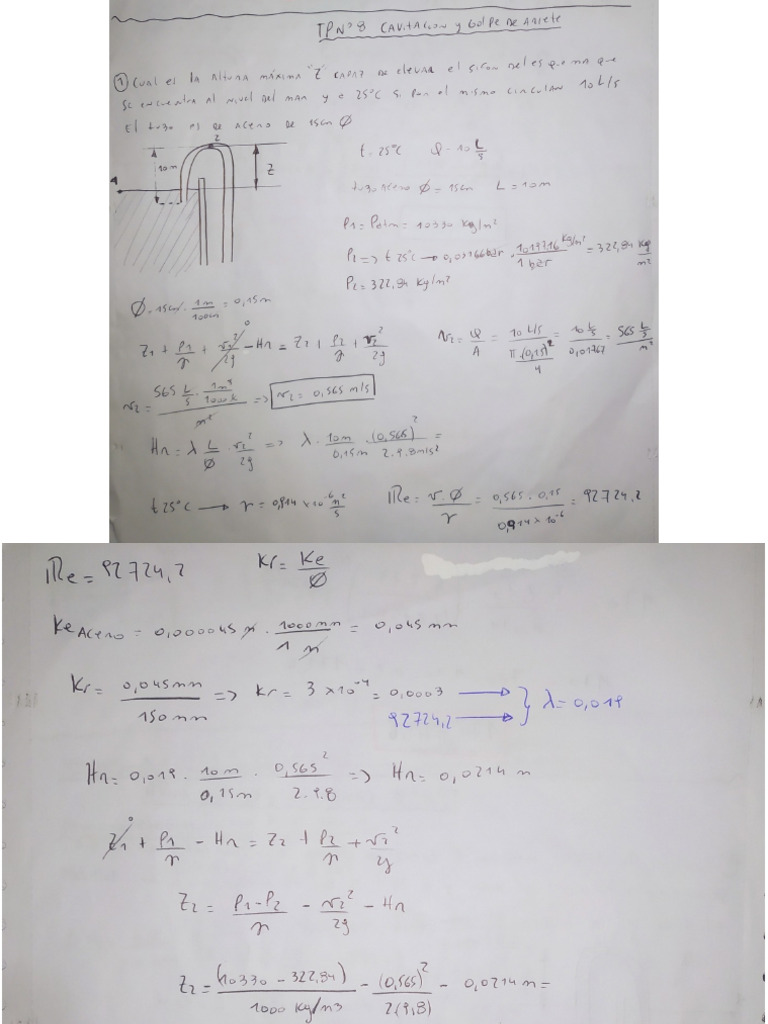 TPNº8 CAVITACION y GOLPE DE ARIETE
① CUAL ES LA ALTURA MÁXIMA "Z" CAPAZ DE ELEVAR EL SIFON DEL ESQUEMA QUE
SE ENCUENTRA AL NIVEL DEL MAR y a 25°C SI POR EL MISMO CIRCULAN 10 L/s
El tubo es de acero de 15cm Ø
2
10m
Z
t=25°C Q=10 L/s
tubo acero Ø=15cm L=10m
P1=Patm=10330 kg/m²
P2 => t 25°C → 0,03166bar . 10197,16 kg/m² / 1 bar = 322,84 kg/m²
P2=322,84 kg/m²
Ø=15cm . 1m/100cm = 0,15m
Z1 + P1/γ + v1²/2g - Hr = Z2 + P2/γ + v2²/2g
v2 = Q/A = 10 L/s / π.(0,15)²/4 = 10 L/s / 0,01767 = 565 L/s / m²
v2 = 565 L/s . 1m³/1000L / m² => v2 = 0,565 m/s
Hr = λ L/Ø . v2²/2g => λ . 10m/0,15m . (0,565)²/2.9.8m/s² =
t 25°C → γ = 0,914 x 10⁻⁶ m²/s
Re = v.Ø/γ = 0,565.0,15 / 0,914x10⁻⁶ = 92724,2
Re = 92724,2 Kr = Ke/Ø
Ke Acero = 0,000045 m . 1000mm/1 m = 0,045 mm
Kr = 0,045mm/150mm => Kr = 3 x10⁻⁴ = 0,0003 → } λ = 0,019
92724,2 →
Hr = 0,019 . 10m/0,15m . 0,565²/2.9.8 => Hr = 0,0214 m
Z1 0 + P1/γ - Hr = Z2 + P2/γ + v2²/2g
Z2 = P1-P2/γ - v2²/2g - Hr
Z2 = (10330 - 322,84)/1000 kg/m3 - (0,565)²/2(9,8) - 0,0214 m =